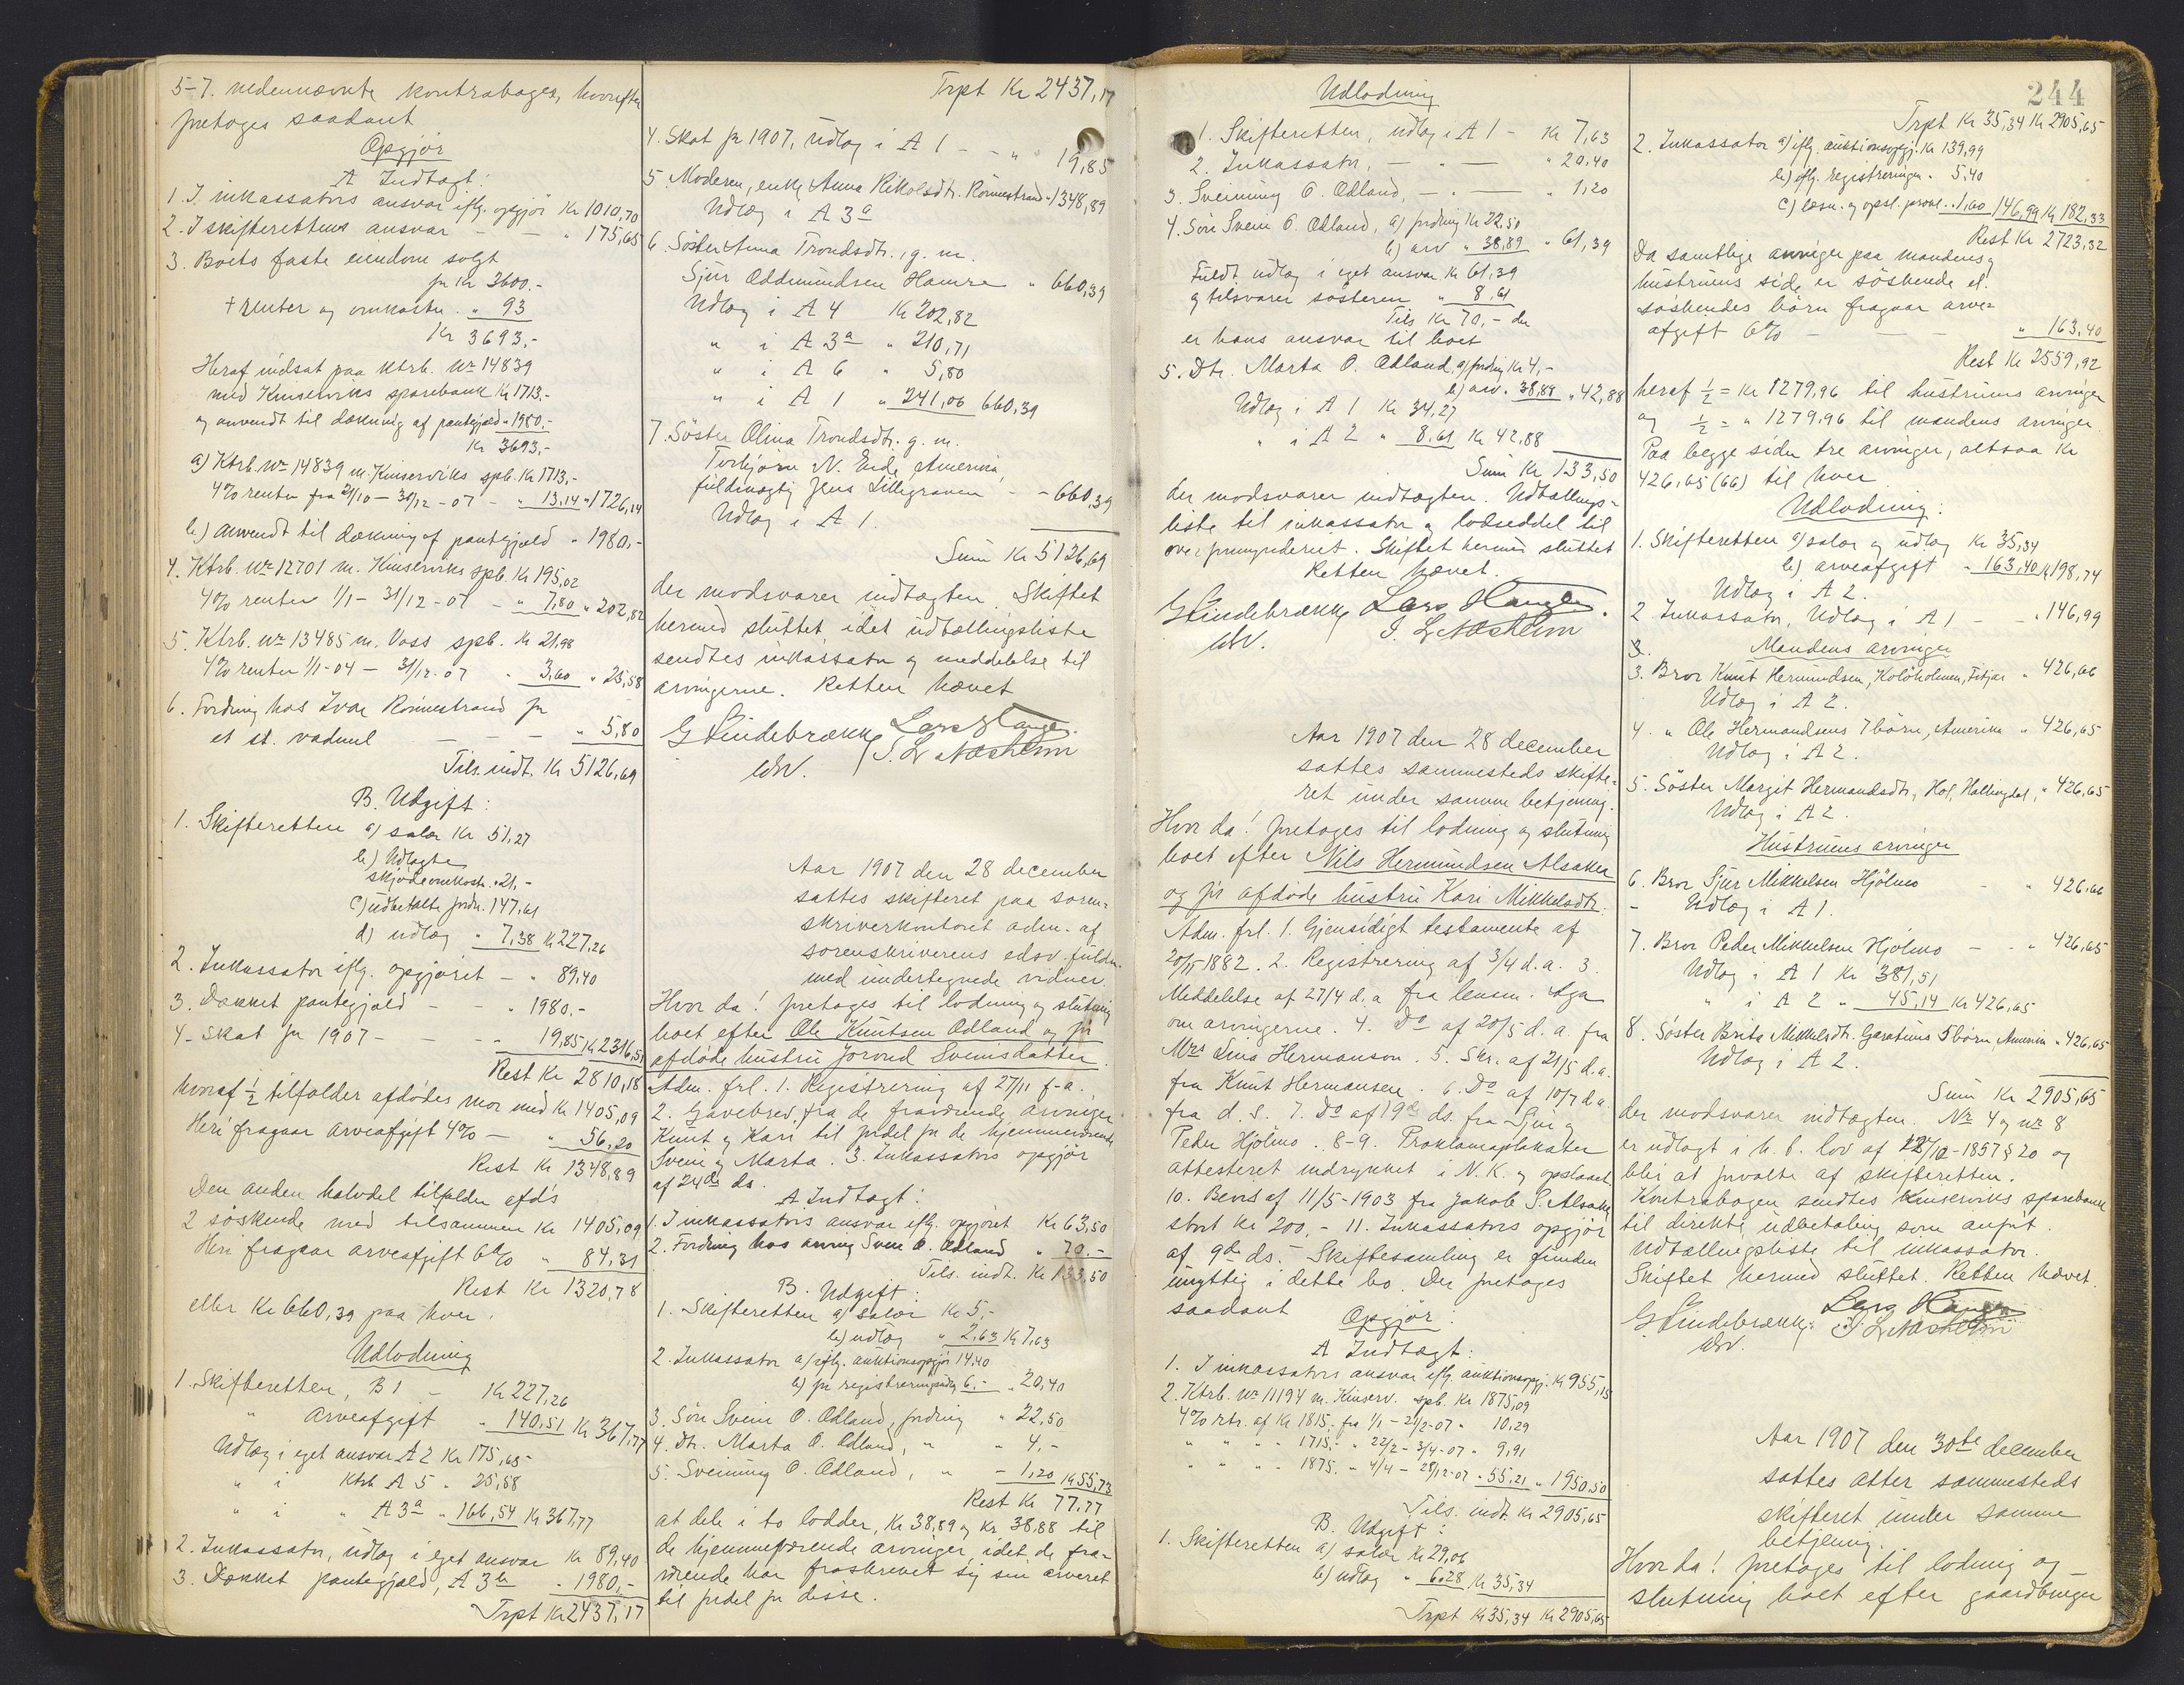 5-7. nedennævnte kontrabøger, hvorefter
foretoges saadant
Opgjör
A Indtægt:
1. I inkassators ansvar iflg. opgjör Kr 1010,70
2. I skifterettens ansvar - - " 175,65
3. Boets faste eiendom solgt
for Kr 3600.-
+ renter og omkostn. " 93
Kr 3693.-
Heraf indsat paa ktrb. No 14839
med Kinserviks sparebank Kr 1713.-
og anvendt til dækning af pantegjæld " 1980.-
Kr 3693.-
a) Ktrb. No 14839 m. Kinserviks spb. Kr 1713.-
4% renter fra 21/10 - 31/12 - 07 - " 13,14 " 1726,14
b) anvendt til dækning af pantgjæld " 1980,-
4. Ktrb. No 12701 m. Kinserviks spb. Kr 195,02
4% renter 1/1 - 31/12 - 07 - " 7,80 " 202,82
5. Ktrb. No 13485 m. Voss spb. Kr 21,98
4% renter 1/1-04 - 31/12-07 " 3,60 " 25,58
6. Fordring hos Ivar Rönnestrand for
et st. vadmel - - - " 5,80
Tils. indt. Kr 5126,69
B. Udgift:
1. Skifteretten a) salær Kr 51,27
b) Udlagte
skjödeomkostn. " 21,-
c) udbetalte fordr. 147,61
d) udlæg " 7,38 Kr 227,26
2. Inkassator iflg. opgjöret - " 89,40
3. Dækket pantegjæld - - " 1980.-
4. Skat for 1907 - - - " 19,85 Kr 2316,51
Rest Kr 2810,18
hvoraf 1/2 tilfalder afdödes mor med Kr 1405,09
Heri fragaar arveafgift 4% - " 56,20
Rest Kr 1348,89
Den anden halvdel tilfalder afd's
2 söskende med tilsammen Kr 1405,09
Heri fragaar arveafgift 6% " 84,31
Rest Kr 1320,78
eller Kr 660,39 paa hver.
Udlodning
1. Skifteretten, B 1 - Kr 227,26
" Arveafgift " 140,51 Kr 367,77
Udlæg i eget ansvar A 2 Kr 175,65
" i Ktrb A 5 " 25,58
" i " A 3a " 166,54 Kr 367,77
2. Inkassator, udlæg i eget ansvar Kr 89,40
3. Dækket pantegjæld, A 3b " 1980,-
Trpt Kr 2437,17
Trpt Kr 2437,17
4. Skat for 1907, udlæg i A 1 - - " " 19,85
5. Moderen, enke Anna Nikolsdtr. Rönnestrand " 1348,89
Udlæg i A 3a
6. Söster Anna Trondsdtr. g. m.
Sjur Oddmundsen Hamre " 660,39
Udlæg i A 4 Kr 202,82
" i A 3a " 210,71
" i A 6 " 5,80
" i A 1 " 241,06 660,39
7. Söster Olina Trondsdtr. g. m.
Torbjörn N. Eide, Amerika,
fuldmægtig Jens Lillegraven - - 660,39
Udlæg i A 1.
Sum Kr 5126,69
der modsvarer indtægten. Skiftet
hermed sluttet, idet udtællingsliste
sendtes inkassator og meddelelse til
arvingerne. Retten hævet
G Lindebrække Lars Hauge.
edsv. S. L. Næsheim
Aar 1907 den 28 december
sattes skifteret paa soren-
skriverkontoret adm. af
sorenskriverens edsv. fuldm.
med undertegnede vidner.
Hvor da! foretoges til lodning og slutning
boet efter Ole Knutsen Ædland og för
afdöde hustru Jorond Sveinsdatter
Adm. frl. 1. Registrering af 27/11 f-a.
2. Gavebrev fra de fraværende arvinger
Knut og Kari til fordel for de hjemmeværende
Svein og Marta. 3. Inkassators opgjör
af 24de ds.
A Indtægt:
1. I inkassators ansvar iflg. opgjöret Kr 63,50
2. Fordring hos arving Svein O. Ædland " 70,-
Tils. indt. Kr 133,50
B. Udgift:
1. Skifteretten a) salær Kr 5,-
b) udlæg " 2,63 Kr 7,63
2. Inkassator a) iflg. auktionsopgjör 14,40
b) for registreringsudg 6.- " 20,40
3. Sön Svein O. Ædland, fordring " 22,50
4. Dtr. Marta O. Ædland, " " 4,-
5. Sveinung O. Ædland, " - 1,20 Kr 55,73
Rest Kr 77,77
at dele i to lodder, Kr 38,89 og Kr 38,88 til
de hjemmeværende arvinger, idet de fra-
værende har fraskrevet sig sin arveret
til fordel for disse.
Udlodning
1. Skifteretten, udlæg i A 1 - Kr 7,63
2. Inkassator, - " - " 20,40
3. Sveinung O. Ædland, - " - " 1,20
4. Sön Svein O. Ædland, a) fordring Kr 22,50
b) arv " 38,89 " 61,39
Fuldt udlæg i eget ansvar Kr 61,39
og tilsvarer sösteren " 8,61
Tils. Kr 70,- der
er hans ansvar til boet
5. Dtr. Marta O. Ædland, a) fordring Kr 4,-
b) arv. " 38,88 " 42,88
Udlæg i A 1 Kr 34,27
" i A 2 " 8,61 Kr 42,88
Sum Kr 133,50
der modsvarer indtægten. Udtællings-
liste til inkassator og lodseddel til
overformynderiet. Skiftet hermed sluttet
Retten hævet.
G Lindebrække Lars Hauge.
edsv. S. L. Næsheim
Aar 1907 den 28 december
sattes sammesteds skifte-
ret under samme betjening.
Hvor da! foretoges til lodning og slutning
boet efter Nils Hermundsen Alsaker
og för afdöde hustru Kari Mikkelsdtr.
Adm. frl. 1. Gjensidigt testamente af
20/11 1882. 2. Registrering af 3/4 d. a. 3.
Meddelelse af 27/4 d. a fra lensm. Aga
om arvingerne. 4. Do af 20/5 d. a. fra
Mrs Lina Hermanson. 5. Skr. af 21/5 d. a.
fra Knut Hermansen. 6. Do af 10/7 d a
fra d. s. 7. Do af 19de ds. fra Sjur og
Peder Hjölmo. 8-9. Proklamaplakater
attesteret indrykket i N. K. og opslaaet
10. Bevis af 11/5-1903 fra Jakob S. Alsaker
stort Kr 200,- 11. Inkassators opgjör
af 9de ds. - Skiftesamling er funden
unyttig i dette bo. Der foretoges
saadant Opgjör:
A Indtægt:
1. I inkassators ansvar iflg. auktionsopgj. Kr 955,15
2. Ktrb. No 11194 m. Kinserv. spb. Kr 1875,09
4% rtr. af Kr 1815,- fra 1/1 - 21/2-07 " 10,29
" " " " 1715,- " 22/2 - 3/4-07 " 9,91
" " " " 1875,- " 4/4 - 28/12-07 " 55,21 " 1950.50
Tils. indt. Kr 2905,65
B. Udgift:
1. Skifteretten a) salær Kr 29,06
b) udlæg " 6,28 Kr 35,34
Trpt Kr 35,34 Kr 2905,65
244
Trpt Kr 35,34 Kr 2905,65
2. Inkassator a) iflg. auktionsopgj. Kr 139,99
b) iflg. registreringen " 5,40
c) læsn. og opsl. prokl. " 1,60 146,99 Kr 182,33
Rest Kr 2723,32
Da samtlige arvinger paa mandens og
hustruens side er söskende el.
söskendes börn fragaar arve-
afgift 6% - - - " 163,40
Rest Kr 2559,92
heraf 1/2 = Kr 1279,96 til hustruens arvinger
og 1/2 = " 1279,96 til mandens arvinger.
Paa begge sider tre arvinger, altsaa Kr
426,65 (66) til hver
Udlodning:
1. Skifteretten a) salær og udlæg Kr 35,34
b) arveafgift " 163,40 Kr 198,74
Udlæg i A 2.
2 Inkassator, Udlæg i A 1 - - " 146,99
3. Mandens arvinger
3. Bror Knut Hermundsen, Kolöholmen, Fitjar " 426,66
Udlæg i A 2.
4. " Ole Hermandsens 7 börn, Amerika " 426,65
Udlæg i A 2.
5. Söster Margit Hermandsdtr, Hol, Hallingdal, " 426,65
Udlæg i A 2.
Hustruens arvinger
6. Bror Sjur Mikkelsen Hjölmo - " 426,66
- Udlæg i A 1.
7. Bror Peder Mikkelsen Hjölmo - - " 426,65
Udlæg i A 1 Kr 381,51
" i A 2 " 45,14 Kr 426,65
8. Söster Brita Mikkelsdtr. Garatuns 5 börn, Amerika " 426,65
Udlæg i A 2.
Sum Kr 2905,65
der modsvarer indtægten. No 4 og no 8
er udlagt i h. t. lov af 12/10-1857 § 20 og
blir at forvalte af skifteretten.
Kontrabogen sendtes Kinserviks sparebank
til direkte udbetaling som anført.
Udtællingsliste til inkassator.
Skiftet hermed sluttet. Retten hævet.
G Lindebrække Lars Hauge
edsv. S. L. Næsheim
Aar 1907 den 30te december
sattes atter sammesteds
skifteret under samme
betjening.
Hvor da! foretoges til lodning og
slutning boet efter gaardbruger